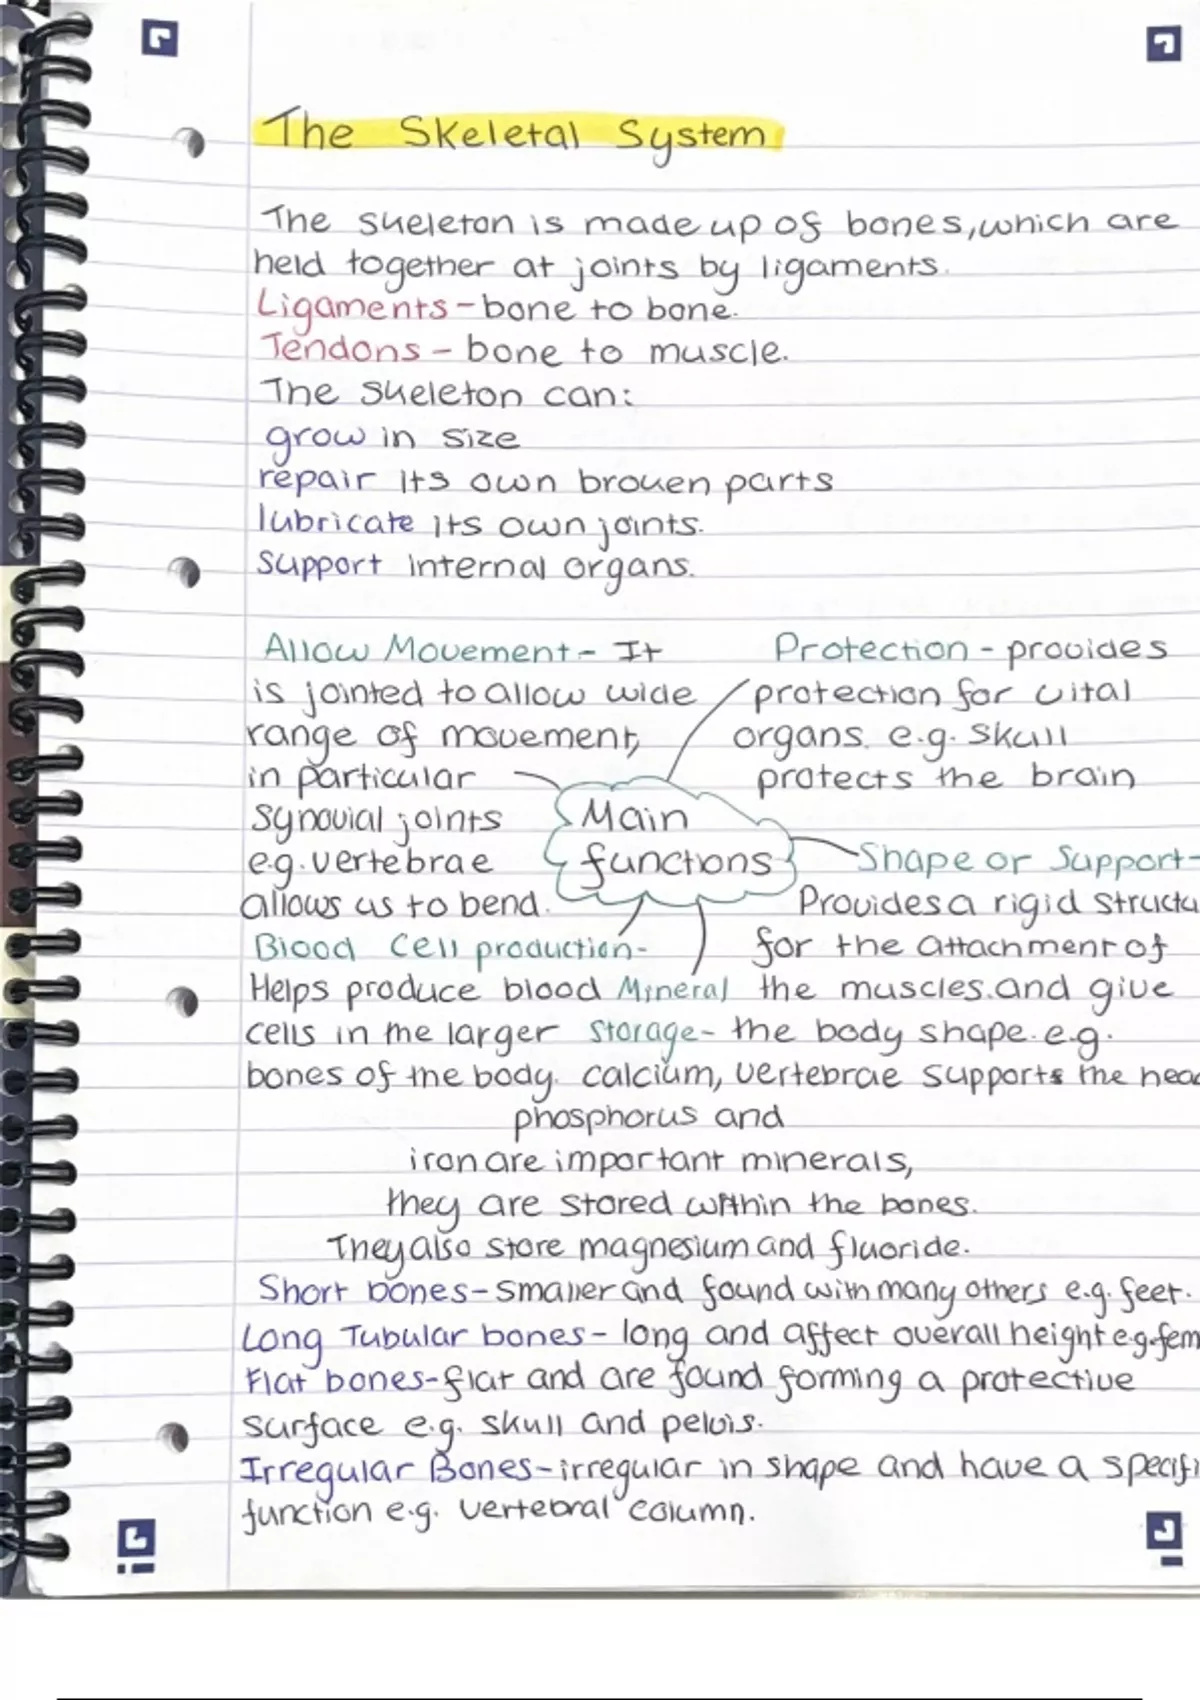 The Skeletal System
The skeleton is made up of bones, which are
held together at joints by ligaments.
Ligaments - bone to bone.
Tendons - bone to muscle.
The skeleton can:
grow in size
repair its own broken parts
lubricate its own joints.
support internal organs.
Allow Movement - It
is jointed to allow wide
range of movement,
in particular
synovial joints
e.g. vertebrae
allows us to bend.
Protection - provides
protection for vital
organs. e.g. skull
protects the brain
Main
functions
Shape or Support-
Provides a rigid structu
for the attachment of
the muscles. and give
the body shape. e.g.
vertebrae supports the head
Blood Cell production-
Helps produce blood
cells in the larger
bones of the body.
Mineral
storage-
calcium,
phosphorus and
iron are important minerals,
they are stored within the bones.
They also store magnesium and fluoride.
Short bones - smaller and found with many others e.g. feet.
Long Tubular bones - long and affect overall height e.g. fem
Flat bones - flat and are found forming a protective
surface e.g. skull and pelvis.
Irregular Bones - irregular in shape and have a specifi
function e.g. vertebral column.